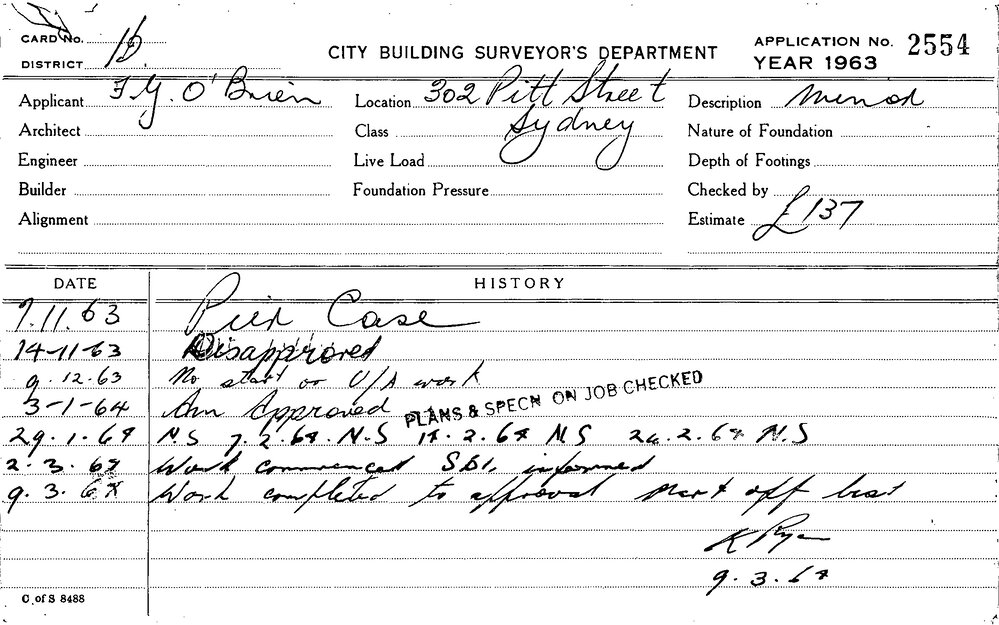 CARD No.
DISTRICT
CITY BUILDING SURVEYOR'S DEPARTMENT
APPLICATION No. 2554
YEAR 1963
Applicant F.G. O'Brien
Location 302 Pitt Street
Description Minor
Architect
Class Sydney
Nature of Foundation
Engineer
Live Load
Depth of Footings
Builder
Foundation Pressure
Checked by
Alignment
Estimate £137
DATE HISTORY
7.11.63 Case
14-11-63 Disapproved
9.12.63 No start or U/A work
3-1-64 Am Approved PLANS & SPECN ON JOB CHECKED
29.1.64 N.S 7.2.64. N.S 2.64 N S 2.64 N.S
2.3.64 Work commenced informed
9.3.64 Work completed to approval off
K Ryan
9.3.64
C of S 8488